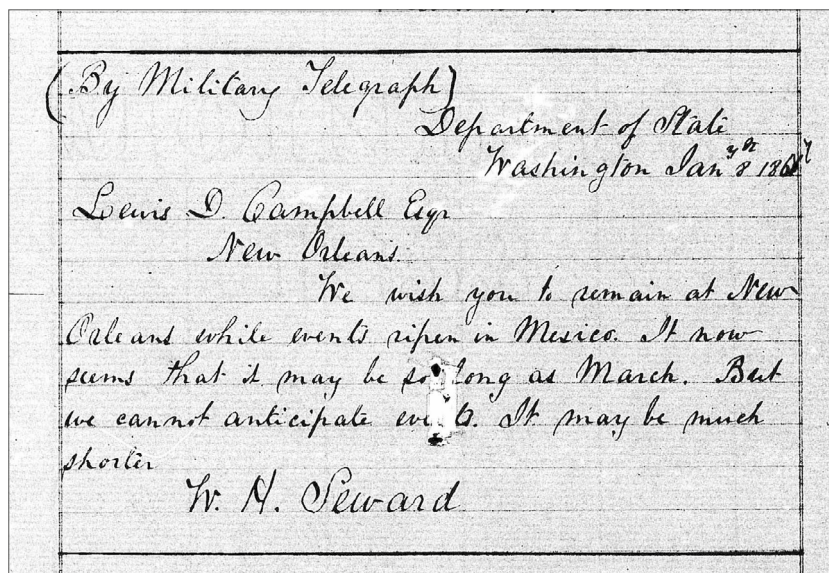 (By Military Telegraph)
Department of State
Washington Jany 8th 1867
Lewis D. Campbell Esqr
New Orleans.
We wish you to remain at New
Orleans while events ripen in Mexico. It now
seems that it may be so long as March. But
we cannot anticipate events. It may be much
shorter
W. H. Seward